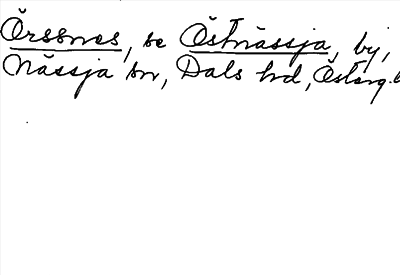 Örssnes, se Östnässja, by,
Nässja sn, Dals hd, Österg. l